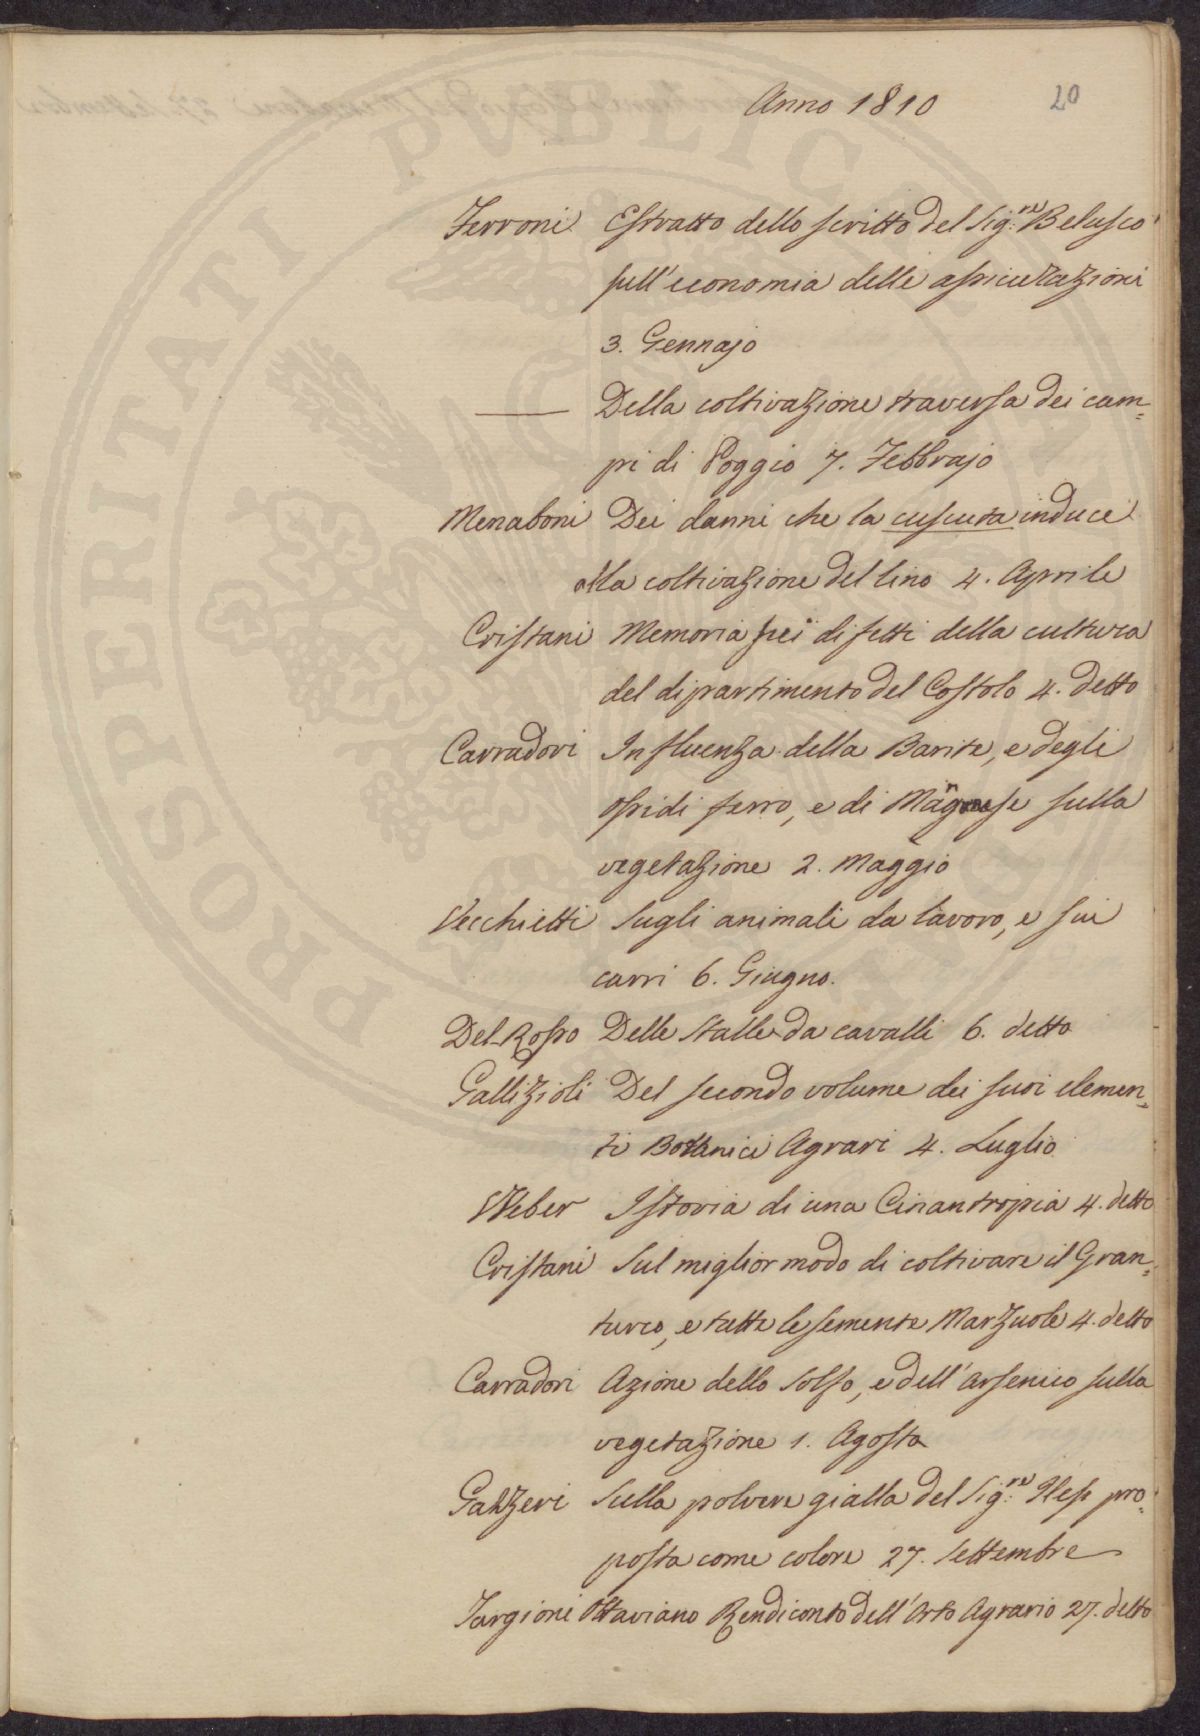 Anno 1810
20
Ferroni Estratto dello scritto del Sig.re Belasco
sull'economia delle
3. Gennajo
Della coltivazione traversa dei cam=
pi di Poggio 7. Febbrajo
Menaboni Dei danni che la cuscuta induce
alla coltivazione del lino 4. Aprile
Cristani Memoria sui difetti della cultura
del dipartimento del Crostolo 4. detto
Carradori Influenza della Barite, e degli
ossidi ferro, e di Manganese sulla
vegetazione 2. Maggio
Vecchietti Sugli animali da lavoro, e sui
carri 6. Giugno.
Del Rosso Delle Stalle da cavalli 6. detto
Gallizioli Del secondo volume dei suoi elemen=
ti Bottanici Agrari 4. Luglio
Weber Istoria di una Cinantropia 4. detto
Cristani Sul miglior modo di coltivare il Gran=
turco, e tutte le semente Marzuole 4. detto
Carradori Azione dello Solfo, e dell'Arsenico sulla
vegetazione 1. Agosto
Gazzeri Sulla polvere gialla del Sig.re pro=
posta come colore 27. Settembre
Targioni Ottaviano Rendiconto dell'Orto Agrario 27. detto
PROSPERITATI PUBLIC